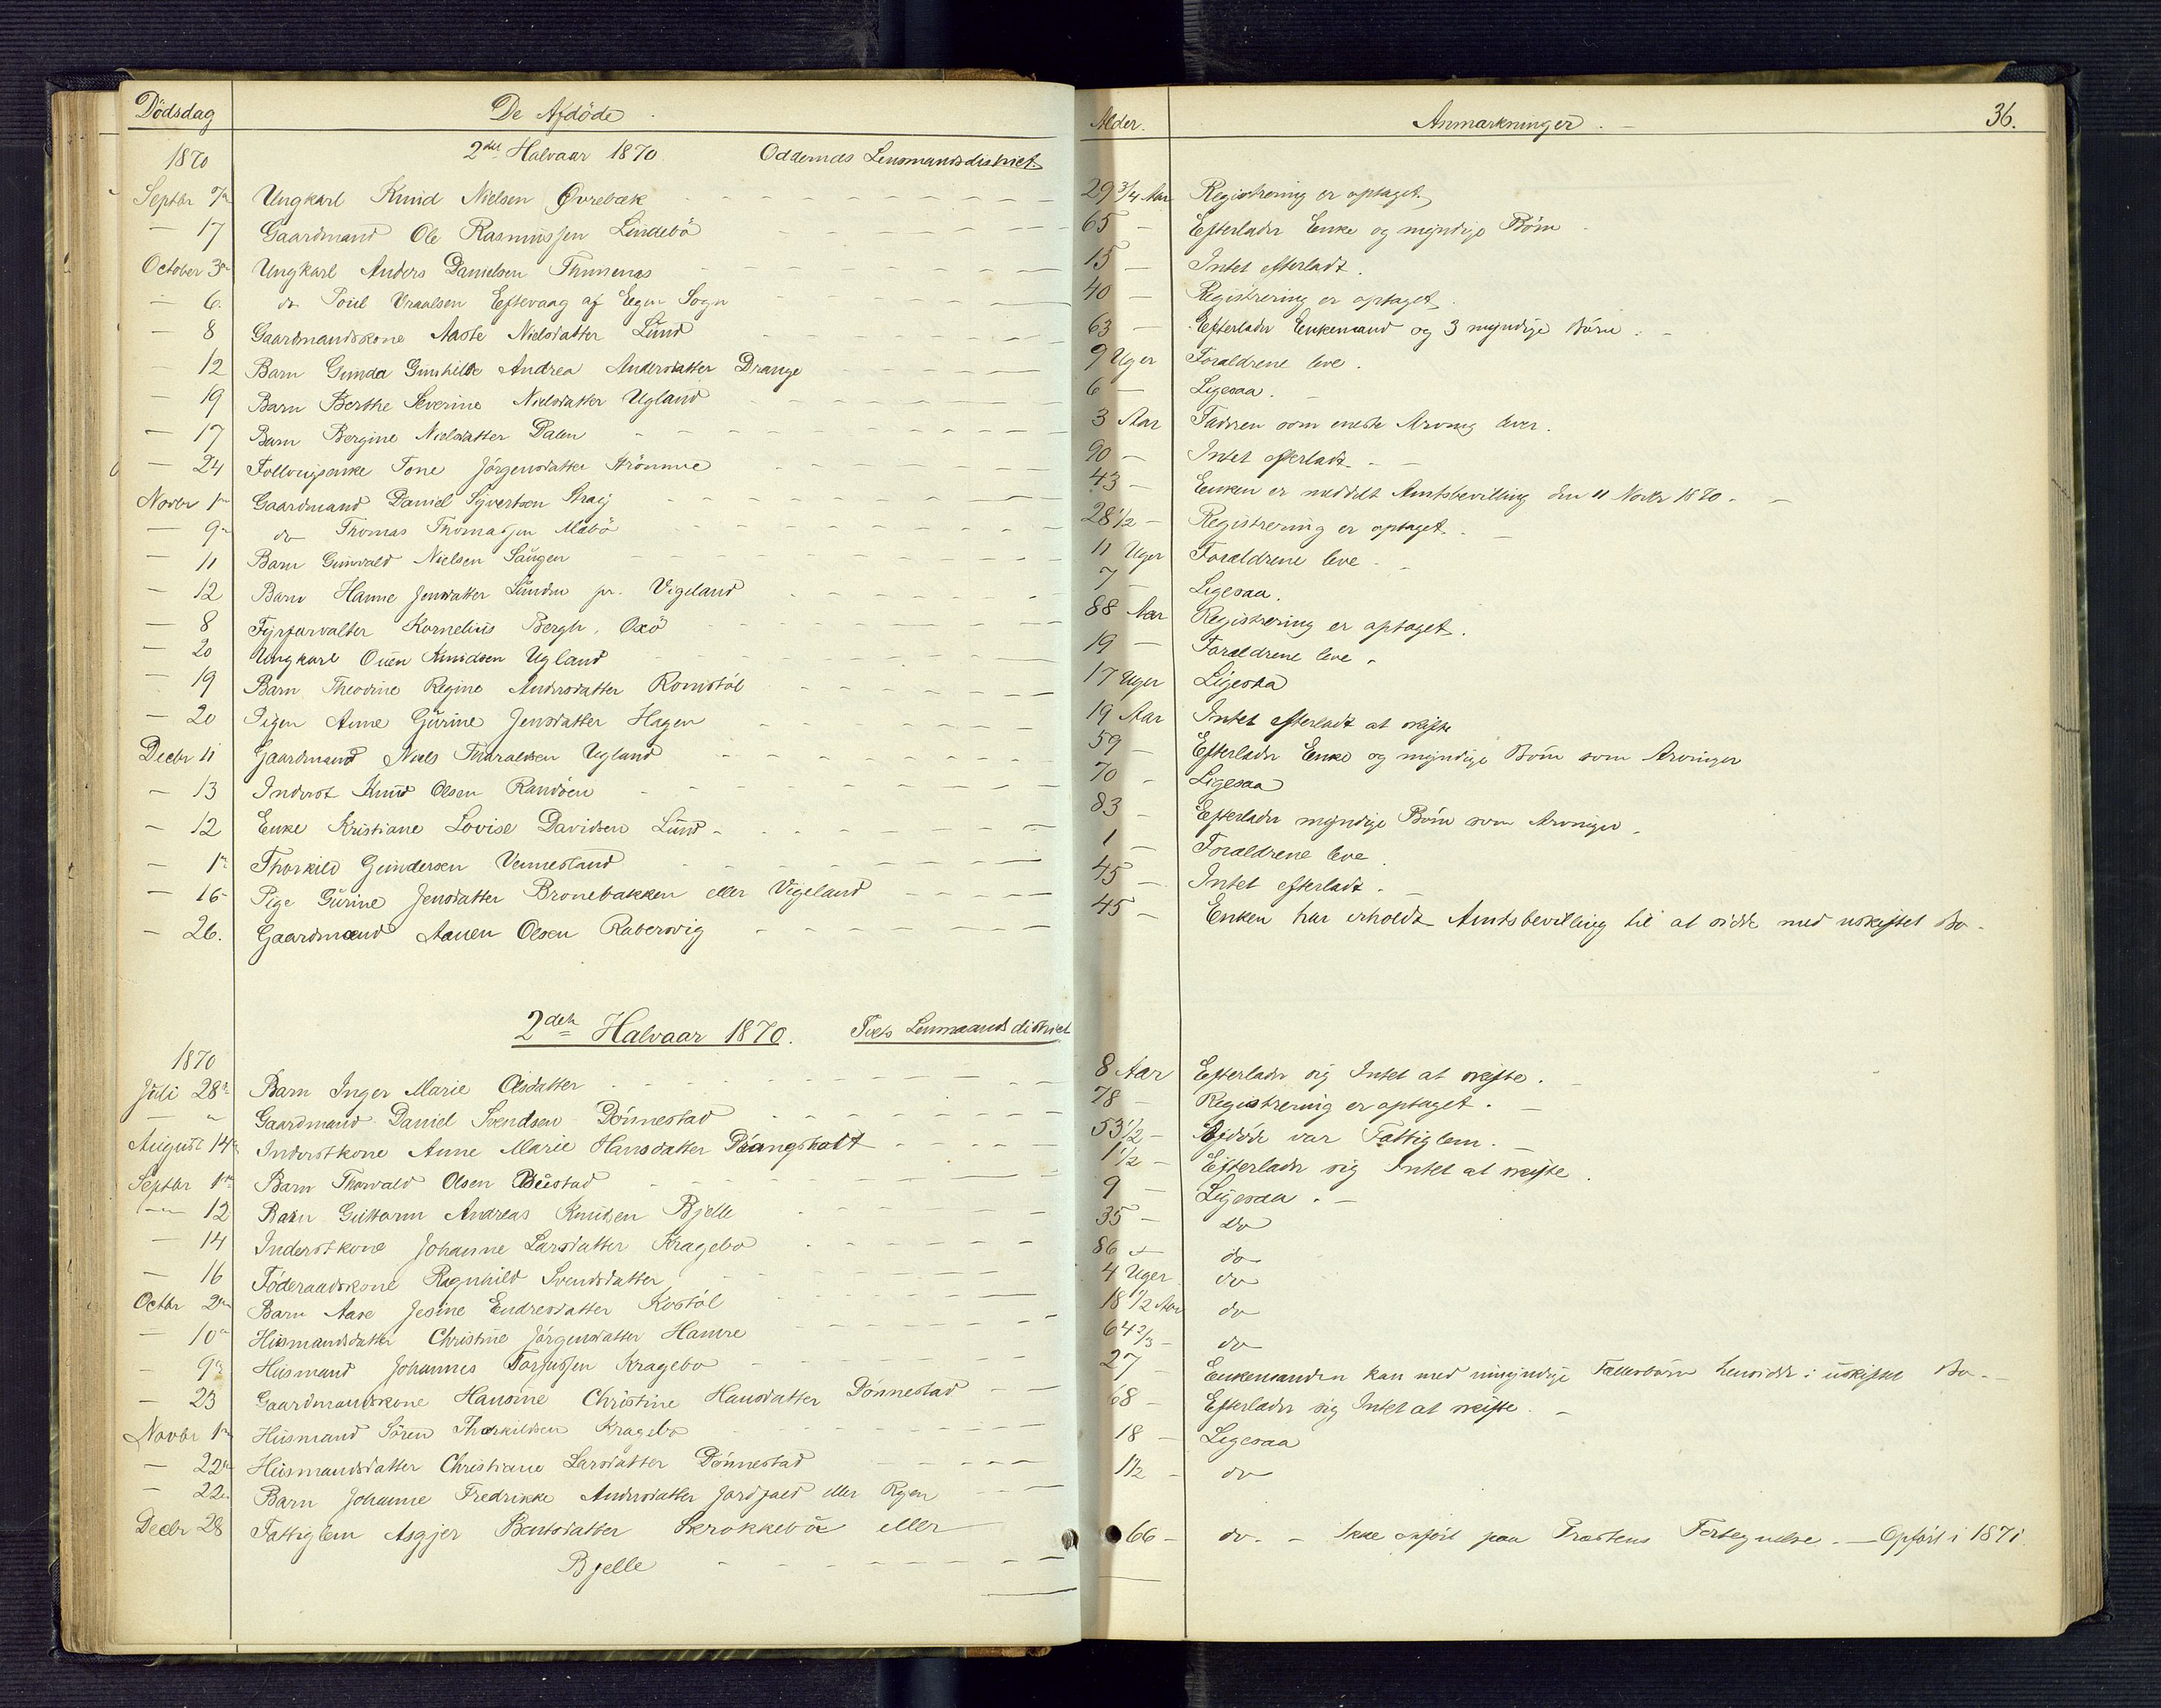 Dödsdag De Afdöde. Alder. Anmærkninger. 36.
1870 2det Halvaar 1870 Oddernæs Lensmandsdistrict.
Septbr Ungkarl Knud Nielsen Øvrebæk 29 3/4 Aar Registrering er optaget.
— 17 Gaardmand Ole Rasmussen Lindebö 65 — Efterlader Enke og myndige Börn
October 3die Ungkarl Anders Danielsen 15 — Intet efterladt.
— 6. do Poul Vraalsen Eftevaag af Egen Sogn 40 — Registrering er optaget.
— 8 Gaardmandskone Aaste Nielsdatter Lund 63 — Efterlader Enkemand og 3 myndige Börn. —
— 12 Barn Gunda Gunhilde Andrea Andersdatter Drange 9 Uger Forældrene leve.
— 19 Barn Berthe Severine Nielsdatter Ugland 6 — Ligesaa. —
— 17 Barn Bergine Nielsdatter Dalen 3 Aar Faderen som eneste Arving lever.
— 24 Tone Jörgensdatter Strömme 90 — Intet efterladt. —
Novbr 1ste Gaardmand Daniel Syvertsen Straij 43 — Enken er meddelt Amtsbevilling den 11 Novbr 1870. —
— 9de do Thomas Thomassen Mæbö 28 1/2 — Registrering er optaget. —
— 11 Barn Gunvald Nielsen Saugen 11 Uger Forældrene leve. —
— 12 Barn Hanne Jensdatter Lunden pr. Vigeland 7 — Ligesaa.
— 8 Fyrforvalter Kornelius Bergh, Oxö 88 Aar Registrering er optaget.
— 20 Ungkarl Ouen Knudsen Ugland 19 — Forældrene leve.
19 Barn Theodine Regine Andersdatter Romstöl 17 Uger Ligesaa
— 20 Pigen Anne Gurine Jensdatter Hagen 19 Aar Intet efterladt at skifte
Decbr 11 Gaardmand Niels Tharaldsen Ugland 59 — Efterlader Enke og myndige Börn som Arvinger
— 13 Inderst Knud Olsen Randöen 70 — Ligesaa
— 12 Enke Kristiane Lovise Davidsen Lund. 83 — Efterlader myndige Börn som Arvinger.
— 1ste Thorkild Gundersen Vennesland 1 — Forældrene leve.
— 16 Pige Gurine Jensdatter Bronebakken eller Vigeland 45 — Intet efterladt. —
— 26. Gaardmand Aanen Olsen Rabersvig 45 — Enken har erholdt Amtsbevilling til at sidde med uskiftet Bo.
2det Halvaar 1870. Tvets Lensmandsdistrict
1870
Juli 28de Barn Inger Marie Olsdatter 8 Aar Efterlader sig Intet at skifte. —
— " Gaardmand Daniel Svendsen Dönnestad 78 — Registrering er optaget. —
August 14de Inderstkone Anne Marie Hansdatter Drangsholt 53 1/2 — Afdöde var Fattiglem. —
Septbr 1ste Barn Thorvald Olsen Bustad 1 1/2 — Efterlader sig Intet at skifte.
— 12 Barn Guttorm Andreas Knudsen Bjelle 9 — Ligesaa. —
— 14 Inderstkone Johanne Larsdatter Kragebo 35 — do
— 16 Föderaadskone Ragnhild Svendsdatter 86 — do
Octbr 2den Barn Aase Jesine Endresdatter Kostöl 4 Uger do
— 10de Husmandsdatter Christine Jörgensdatter Hamre 18 1/2 Aar do
— 9de Husmand Johannes Torjussen Kragebo 64 2/3 — do
— 23 Gaardmandskone Hansine Christine Hansdatter Dönnestad 27 Enkemanden kan med umyndige Fællesbörn hensidde i uskiftet Bo. —
Novbr 1ste Husmand Sören Thorkildsen Kragebo 68 — Efterlader sig Intet at skifte. —
— 22de Husmandsdatter Christiane Larsdatter Dönnestad 18 — Ligesaa
— 22de Barn Johanne Fredrikke Andersdatter Jordfald eller Ryen 1 1/2 — do
Decbr 28 Fattiglem Asgjer Bentsdatter Skrokkebö eller 66 — do. — Ikke opfört paa Præstens Fortegnelse. — Opfört i 1871.
Bjelle